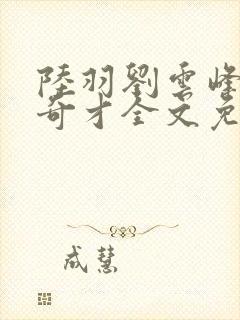 陸羽劉雲峰
奇才全文免
成慧